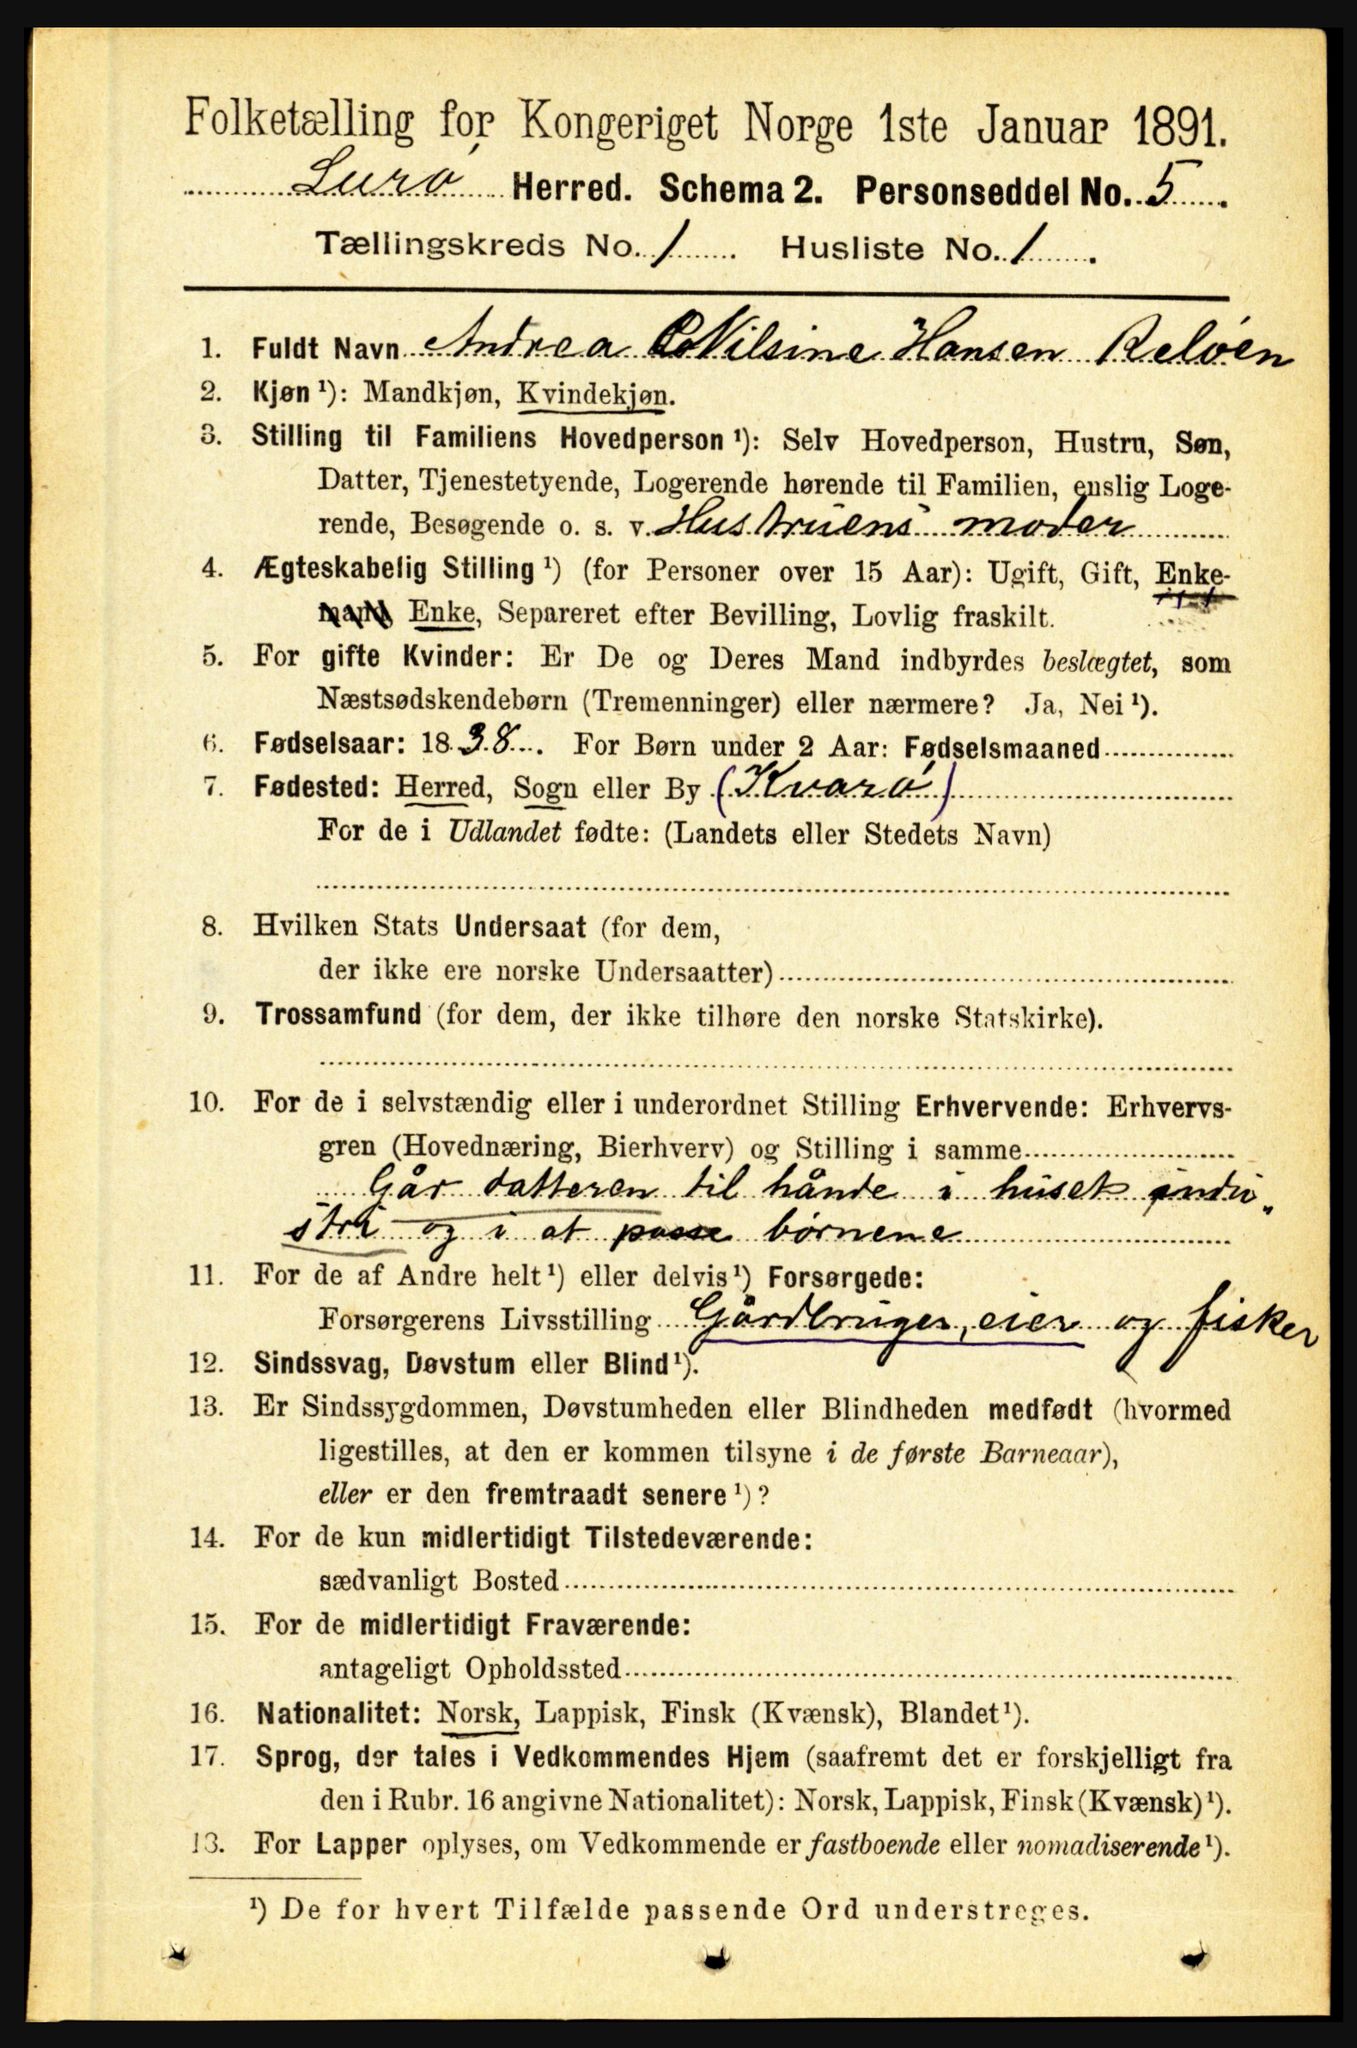 Folketælling for Kongeriget Norge 1ste Januar 1891.
Lurø Herred. Schema 2. Personseddel No. 5
Tællingskreds No. 1 Husliste No. 1.
1. Fuldt Navn Andrea Nilsine Hansen Reløen
2. Kjøn ¹): Mandkjøn, Kvindekjøn.
3. Stilling til Familiens Hovedperson ¹): Selv Hovedperson, Hustru, Søn,
Datter, Tjenestetyende, Logerende hørende til Familien, enslig Loge-
rende, Besøgende o. s. v. Hustruens moder
4. Ægteskabelig Stilling ¹) (for Personer over 15 Aar): Ugift, Gift, Enke-
mand Enke, Separeret efter Bevilling, Lovlig fraskilt.
5. For gifte Kvinder: Er De og Deres Mand indbyrdes beslægtet, som
Næstsødskendebørn (Tremenninger) eller nærmere? Ja, Nei ¹).
6. Fødselsaar: 1838. For Børn under 2 Aar: Fødselsmaaned
7. Fødested: Herred, Sogn eller By (Kvarø)
For de i Udlandet fødte: (Landets eller Stedets Navn)
8. Hvilken Stats Undersaat (for dem,
der ikke ere norske Undersaatter)
9. Trossamfund (for dem, der ikke tilhøre den norske Statskirke).
10. For de i selvstændig eller i underordnet Stilling Erhvervende: Erhvervs-
gren (Hovednæring, Bierhverv) og Stilling i samme
Går datteren til hånde i huset indu-
stri og i at passe børnene
11. For de af Andre helt ¹) eller delvis ¹) Forsørgede:
Forsørgerens Livsstilling Gårdbruger, eier og fisker
12. Sindssvag, Døvstum eller Blind ¹).
13. Er Sindssygdommen, Døvstumheden eller Blindheden medfødt (hvormed
ligestilles, at den er kommen tilsyne i de første Barneaar),
eller er den fremtraadt senere ¹)?
14. For de kun midlertidigt Tilstedeværende:
sædvanligt Bosted
15. For de midlertidigt Fraværende:
antageligt Opholdssted
16. Nationalitet: Norsk, Lappisk, Finsk (Kvænsk), Blandet ¹).
17. Sprog, der tales i Vedkommendes Hjem (saafremt det er forskjelligt fra
den i Rubr. 16 angivne Nationalitet): Norsk, Lappisk, Finsk (Kvænsk) ¹).
18. For Lapper oplyses, om Vedkommende er fastboende eller nomadiserende ¹).
¹) De for hvert Tilfælde passende Ord understreges.